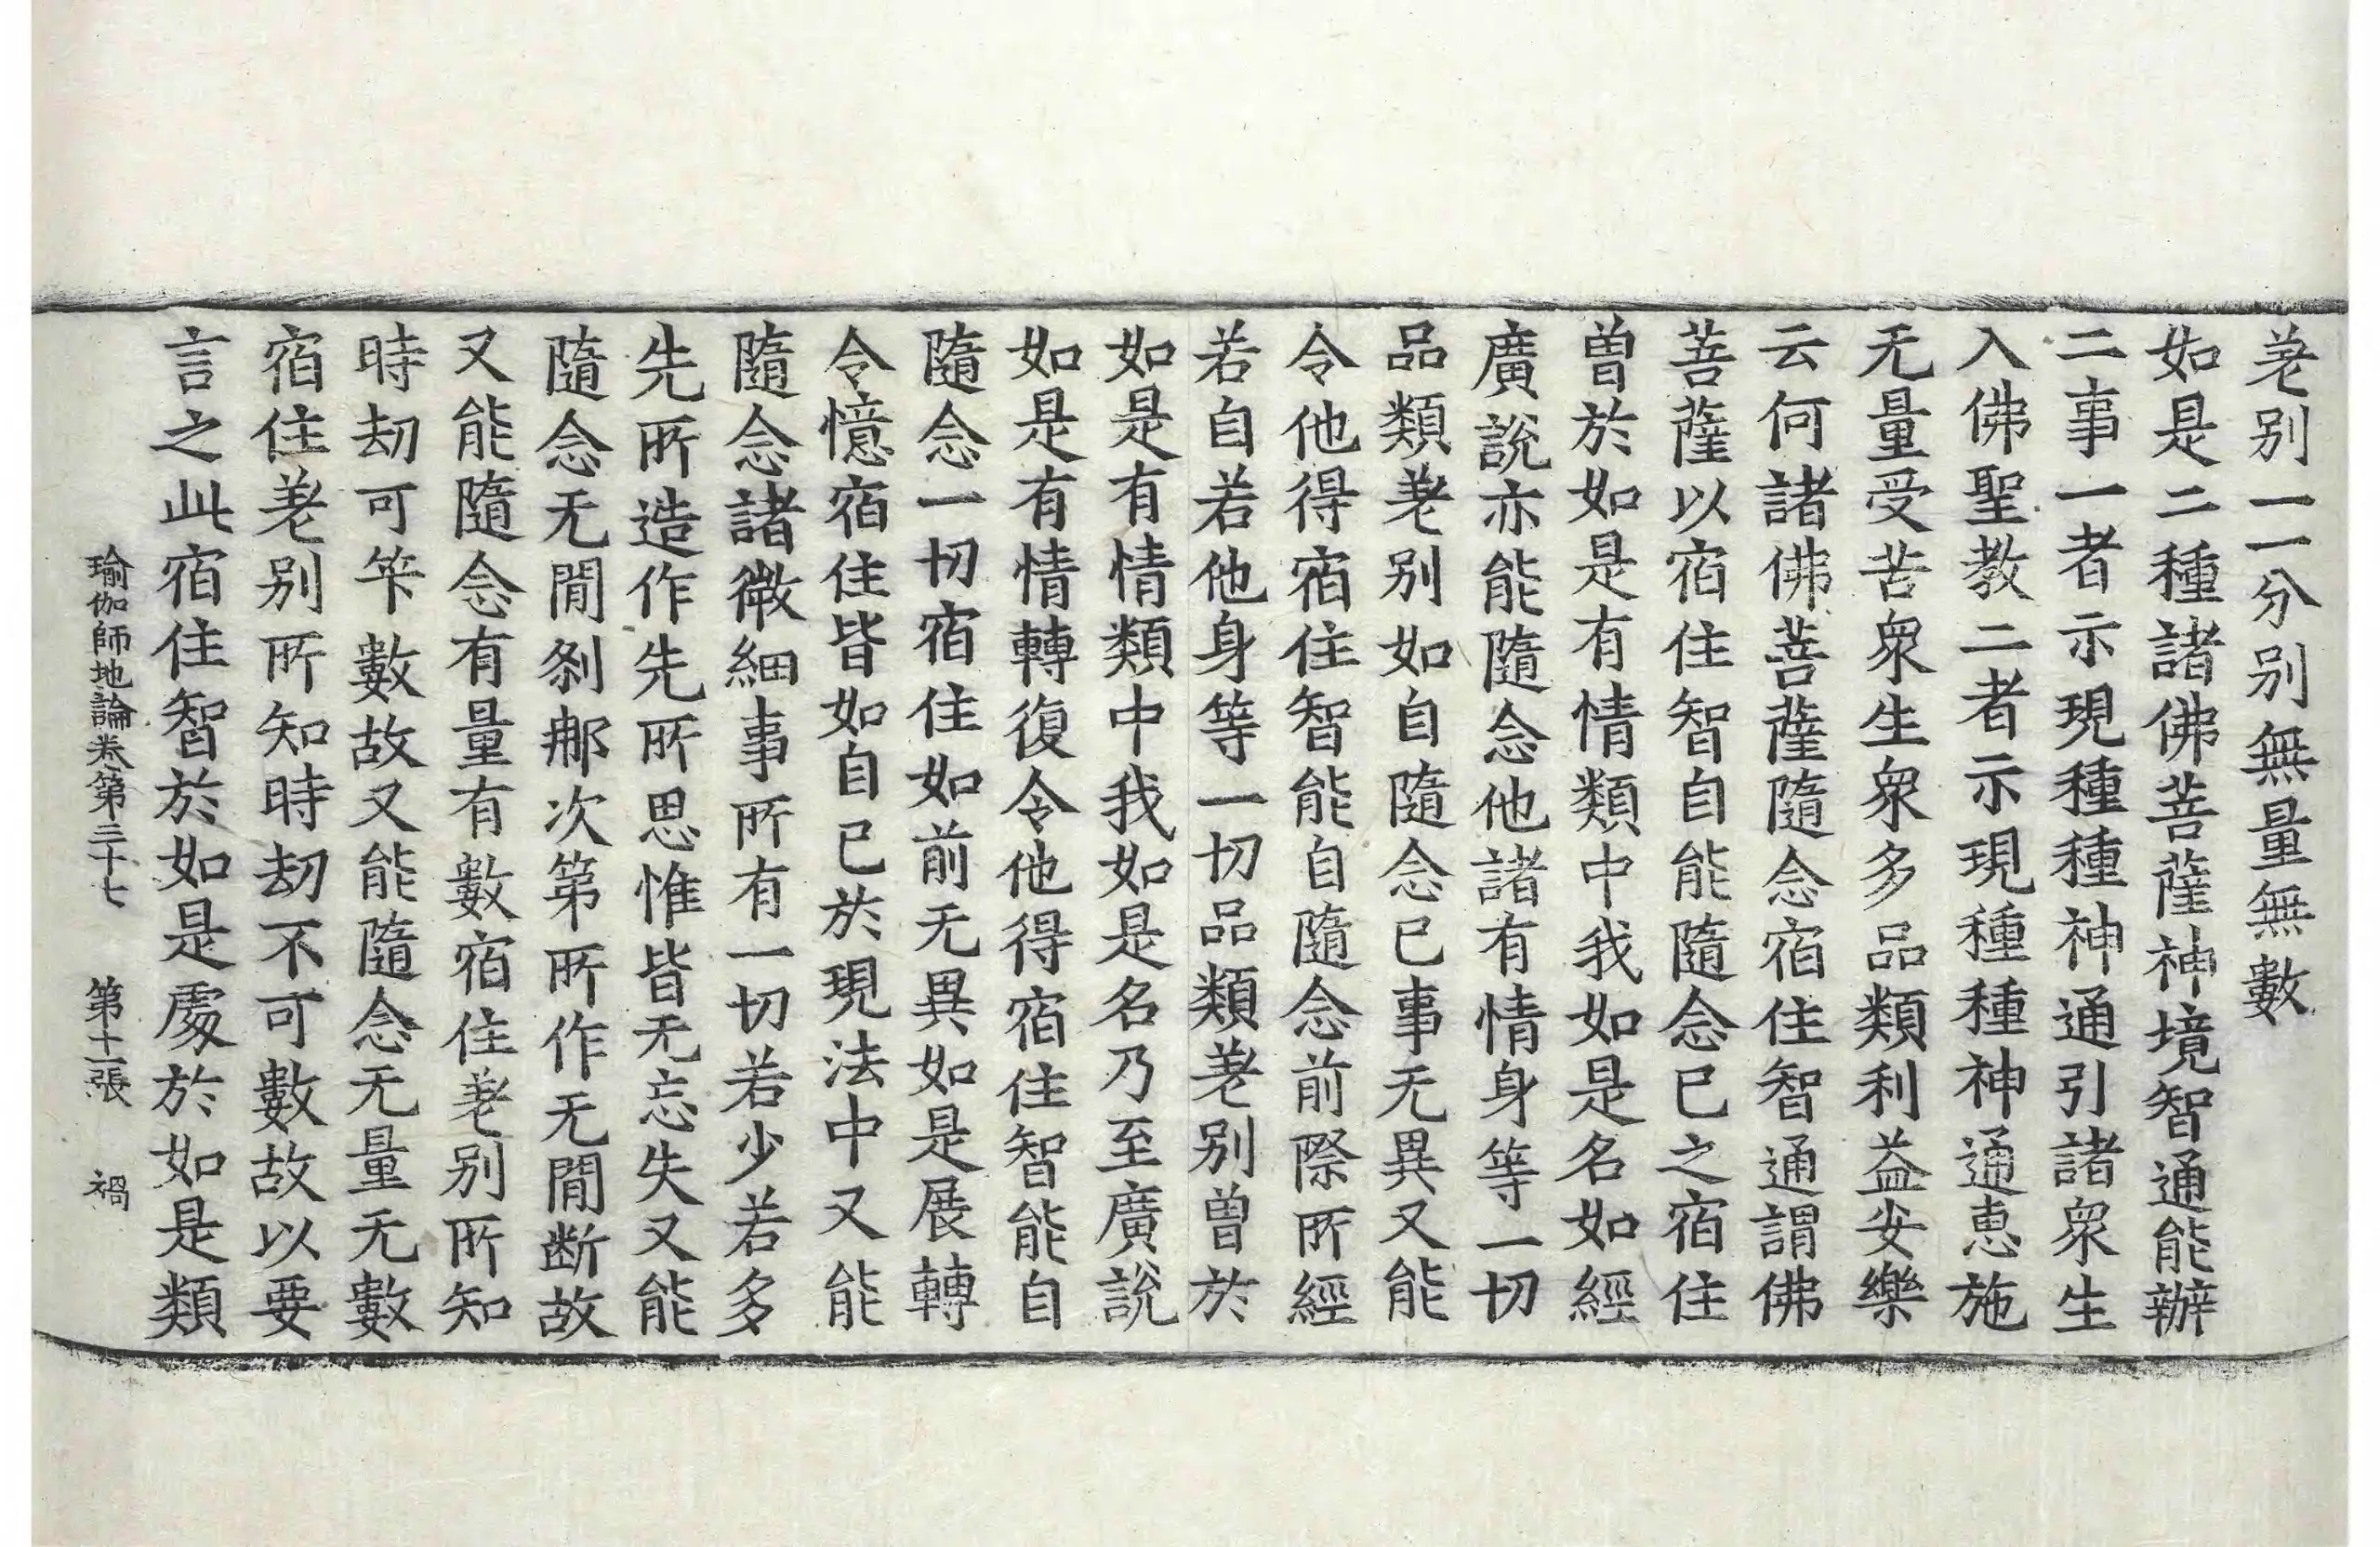 差别一一分别無量無數
如是二種諸佛菩薩神境智通能辦
二事一者示現種種神通引諸衆生
入佛聖教二者示現種種神通惠施
无量受苦衆生衆多品類利益安樂
云何諸佛菩薩隨念宿住智通謂佛
菩薩以宿住智自能隨念已之宿住
曽於如是有情類中我如是名如經
廣說亦能隨念他諸有情身等一切
品類差别如自隨念已事无異又能
令他得宿住智能自隨念前際所經
若自若他身等一切品類差别曽於
如是有情類中我如是名乃至廣說
如是有情轉復令他得宿住智能自
隨念一切宿住如前无異如是展轉
令憶宿住皆如自已於現法中又能
隨念諸微細事所有一切若少若多
先所造作先所思惟皆无忘失又能
隨念无閒剎那次第所作无閒断故
又能隨念有量有數宿住差别所知
時劫可笇數故又能隨念无量无數
宿住差别所知時劫不可數故以要
言之此宿住智於如是處於如是類
瑜伽師地論卷第三十七 第十一張 禍